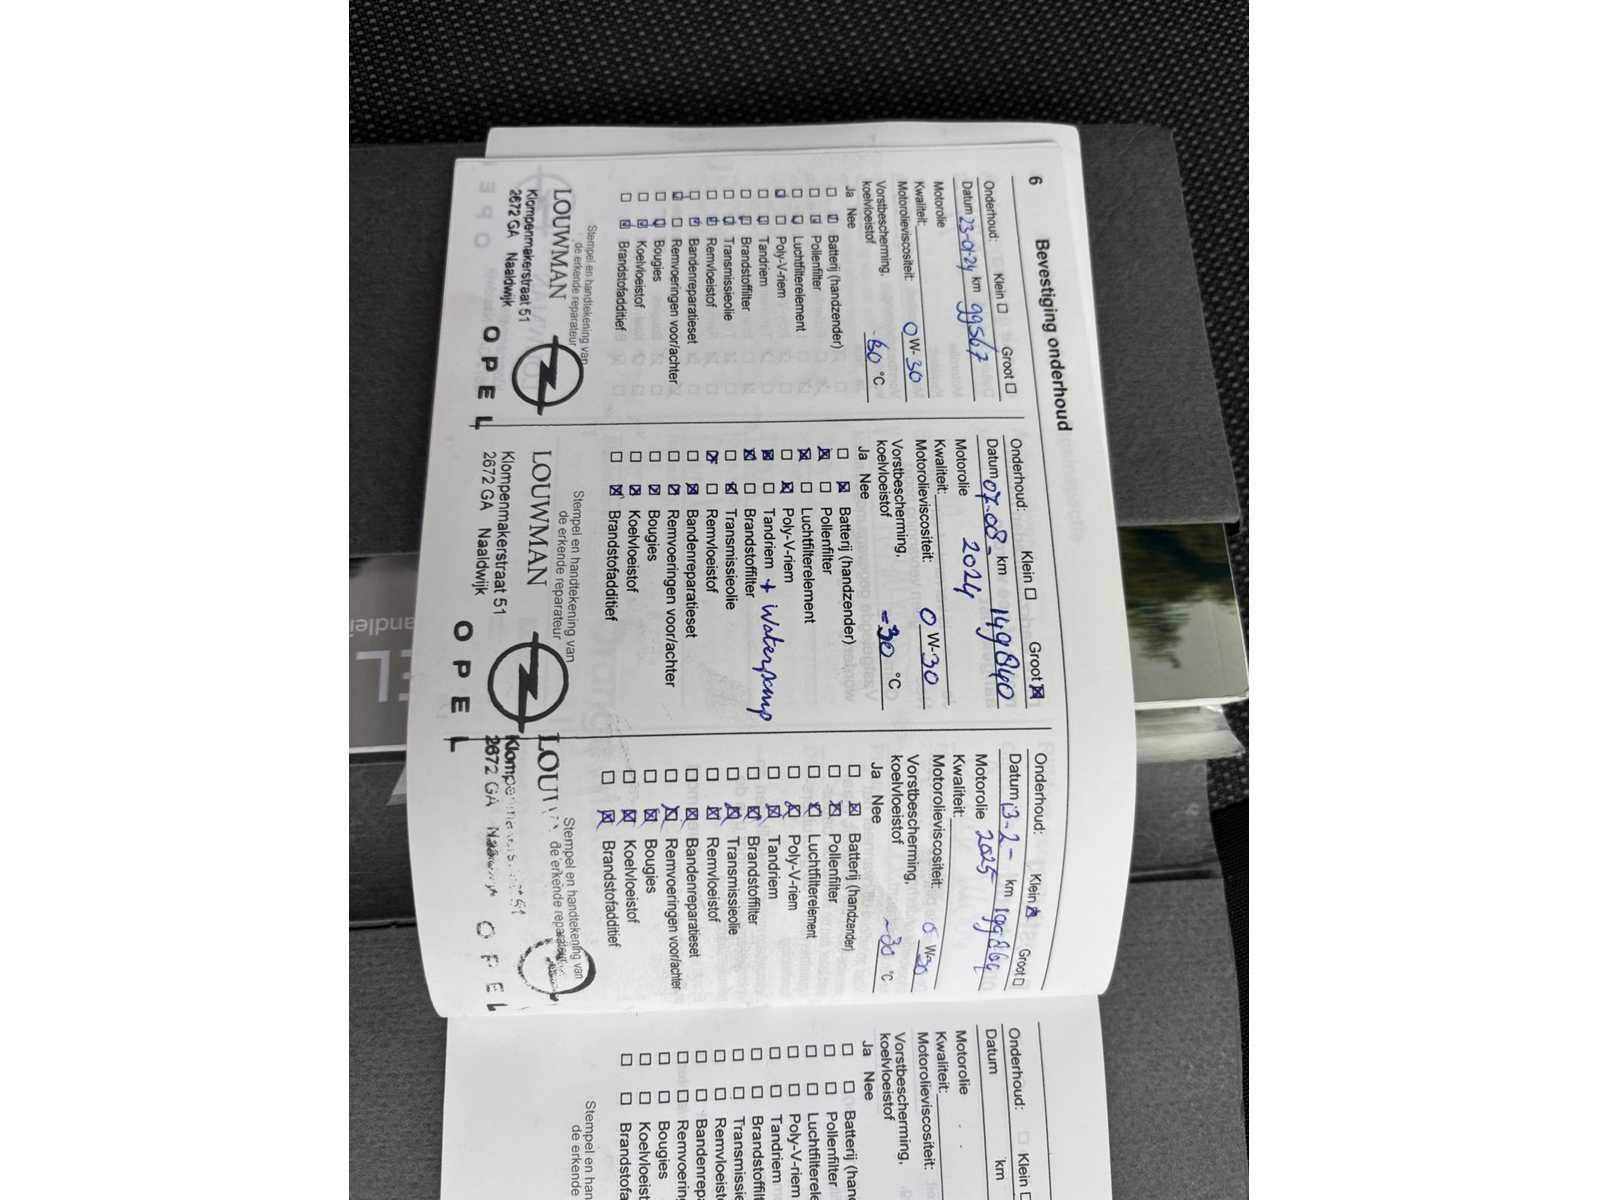 6
Bevestiging onderhoud
Onderhoud: Klein Groot
Datum 23-01-24 km 99567
Motorolie
Kwaliteit:
Motorolieviscositeit: 0 W- 30
Vorstbescherming,
koelvloeistof -30 °C
Ja Nee
Batterij (handzender)
Pollenfilter
Luchtfilterelement
Poly-V-riem
Tandriem
Brandstoffilter
Transmissieolie
Remvloeistof
Bandenreparatieset
Remvoeringen voor/achter
Bougies
Koelvloeistof
Brandstofadditief
Stempel en handtekening van
de erkende reparateur
LOUWMAN
Klompenmakerstraat 51
2672 GA Naaldwijk
OPEL
Onderhoud: Klein Groot
Datum 07-08- km 149840
Motorolie 2024
Kwaliteit:
Motorolieviscositeit: 0 W- 30
Vorstbescherming,
koelvloeistof -30 °C
Ja Nee
Batterij (handzender)
Pollenfilter
Luchtfilterelement
Poly-V-riem
Tandriem + Waterpomp
Brandstoffilter
Transmissieolie
Remvloeistof
Bandenreparatieset
Remvoeringen voor/achter
Bougies
Koelvloeistof
Brandstofadditief
Stempel en handtekening van
de erkende reparateur
LOUWMAN
Klompenmakerstraat 51
2672 GA Naaldwijk
OPEL
Onderhoud: Klein Groot
Datum 13-2- km 199864
Motorolie 2025
Kwaliteit:
Motorolieviscositeit: 0 W- 30
Vorstbescherming,
koelvloeistof -30 °C
Ja Nee
Batterij (handzender)
Pollenfilter
Luchtfilterelement
Poly-V-riem
Tandriem
Brandstoffilter
Transmissieolie
Remvloeistof
Bandenreparatieset
Remvoeringen voor/achter
Bougies
Koelvloeistof
Brandstofadditief
Stempel en handtekening van
de erkende reparateur
2672 GA
Onderhoud: Klein
Datum km
Motorolie
Kwaliteit:
Motorolieviscositeit:
Vorstbescherming,
koelvloeistof
Ja Nee
Batterij (hand
Pollenfilter
Luchtfiltere
Poly-V-riem
Tandriem
Brandstoffil
Transmissie
Remvloeist
Bandenrepa
Remvoering
Bougies
Koelvloeist
Brandstofa
Stempel en han
de erkende